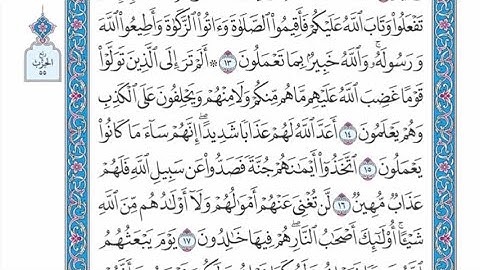 تَفْعَلُوا۟ وَتَابَ ٱللَّهُ عَلَيْكُمْ فَأَقِيمُوا۟ ٱلصَّلَوٰةَ وَءَاتُوا۟ ٱلزَّكَوٰةَ وَأَطِيعُوا۟ ٱللَّهَ
وَرَسُولَهُۥۚ وَٱللَّهُ خَبِيرٌۢ بِمَا تَعْمَلُونَ ١٣ ۞ أَلَمْ تَرَ إِلَى ٱلَّذِينَ تَوَلَّوْا۟
قَوْمًا غَضِبَ ٱللَّهُ عَلَيْهِم مَّا هُم مِّنكُمْ وَلَا مِنْهُمْ وَيَحْلِفُونَ عَلَى ٱلْكَذِبِ
وَهُمْ يَعْلَمُونَ ١٤ أَعَدَّ ٱللَّهُ لَهُمْ عَذَابًا شَدِيدًاۖ إِنَّهُمْ سَآءَ مَا كَانُوا۟
يَعْمَلُونَ ١٥ ٱتَّخَذُوٓا۟ أَيْمَـٰنَهُمْ جُنَّةً فَصَدُّوا۟ عَن سَبِيلِ ٱللَّهِ فَلَهُمْ
عَذَابٌ مُّهِينٌ ١٦ لَّن تُغْنِىَ عَنْهُمْ أَمْوَٰلُهُمْ وَلَآ أَوْلَـٰدُهُم مِّنَ ٱللَّهِ
شَيْـًٔاۚ أُو۟لَـٰٓئِكَ أَصْحَـٰبُ ٱلنَّارِۖ هُمْ فِيهَا خَـٰلِدُونَ ١٧ يَوْمَ يَبْعَثُهُمُ
ربع
الحزب
٥٥